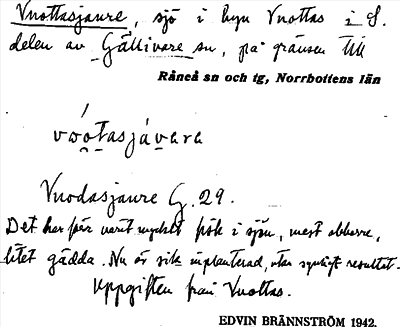 Vuottasjaure, sjö i byn Vuottas i S.
delen av Gällivare sn, på gränsen till
Råneå sn och tg, Norrbottens län
vωo̯tasjávara
Vuodasjaure G. 29.
Det har här varit mycket fisk i sjön, mest abborre,
litet gädda. Nu är sik inplanterad, utan synligt resultat.
Uppgiften från Vuottas.
EDVIN BRÄNNSTRÖM 1942.